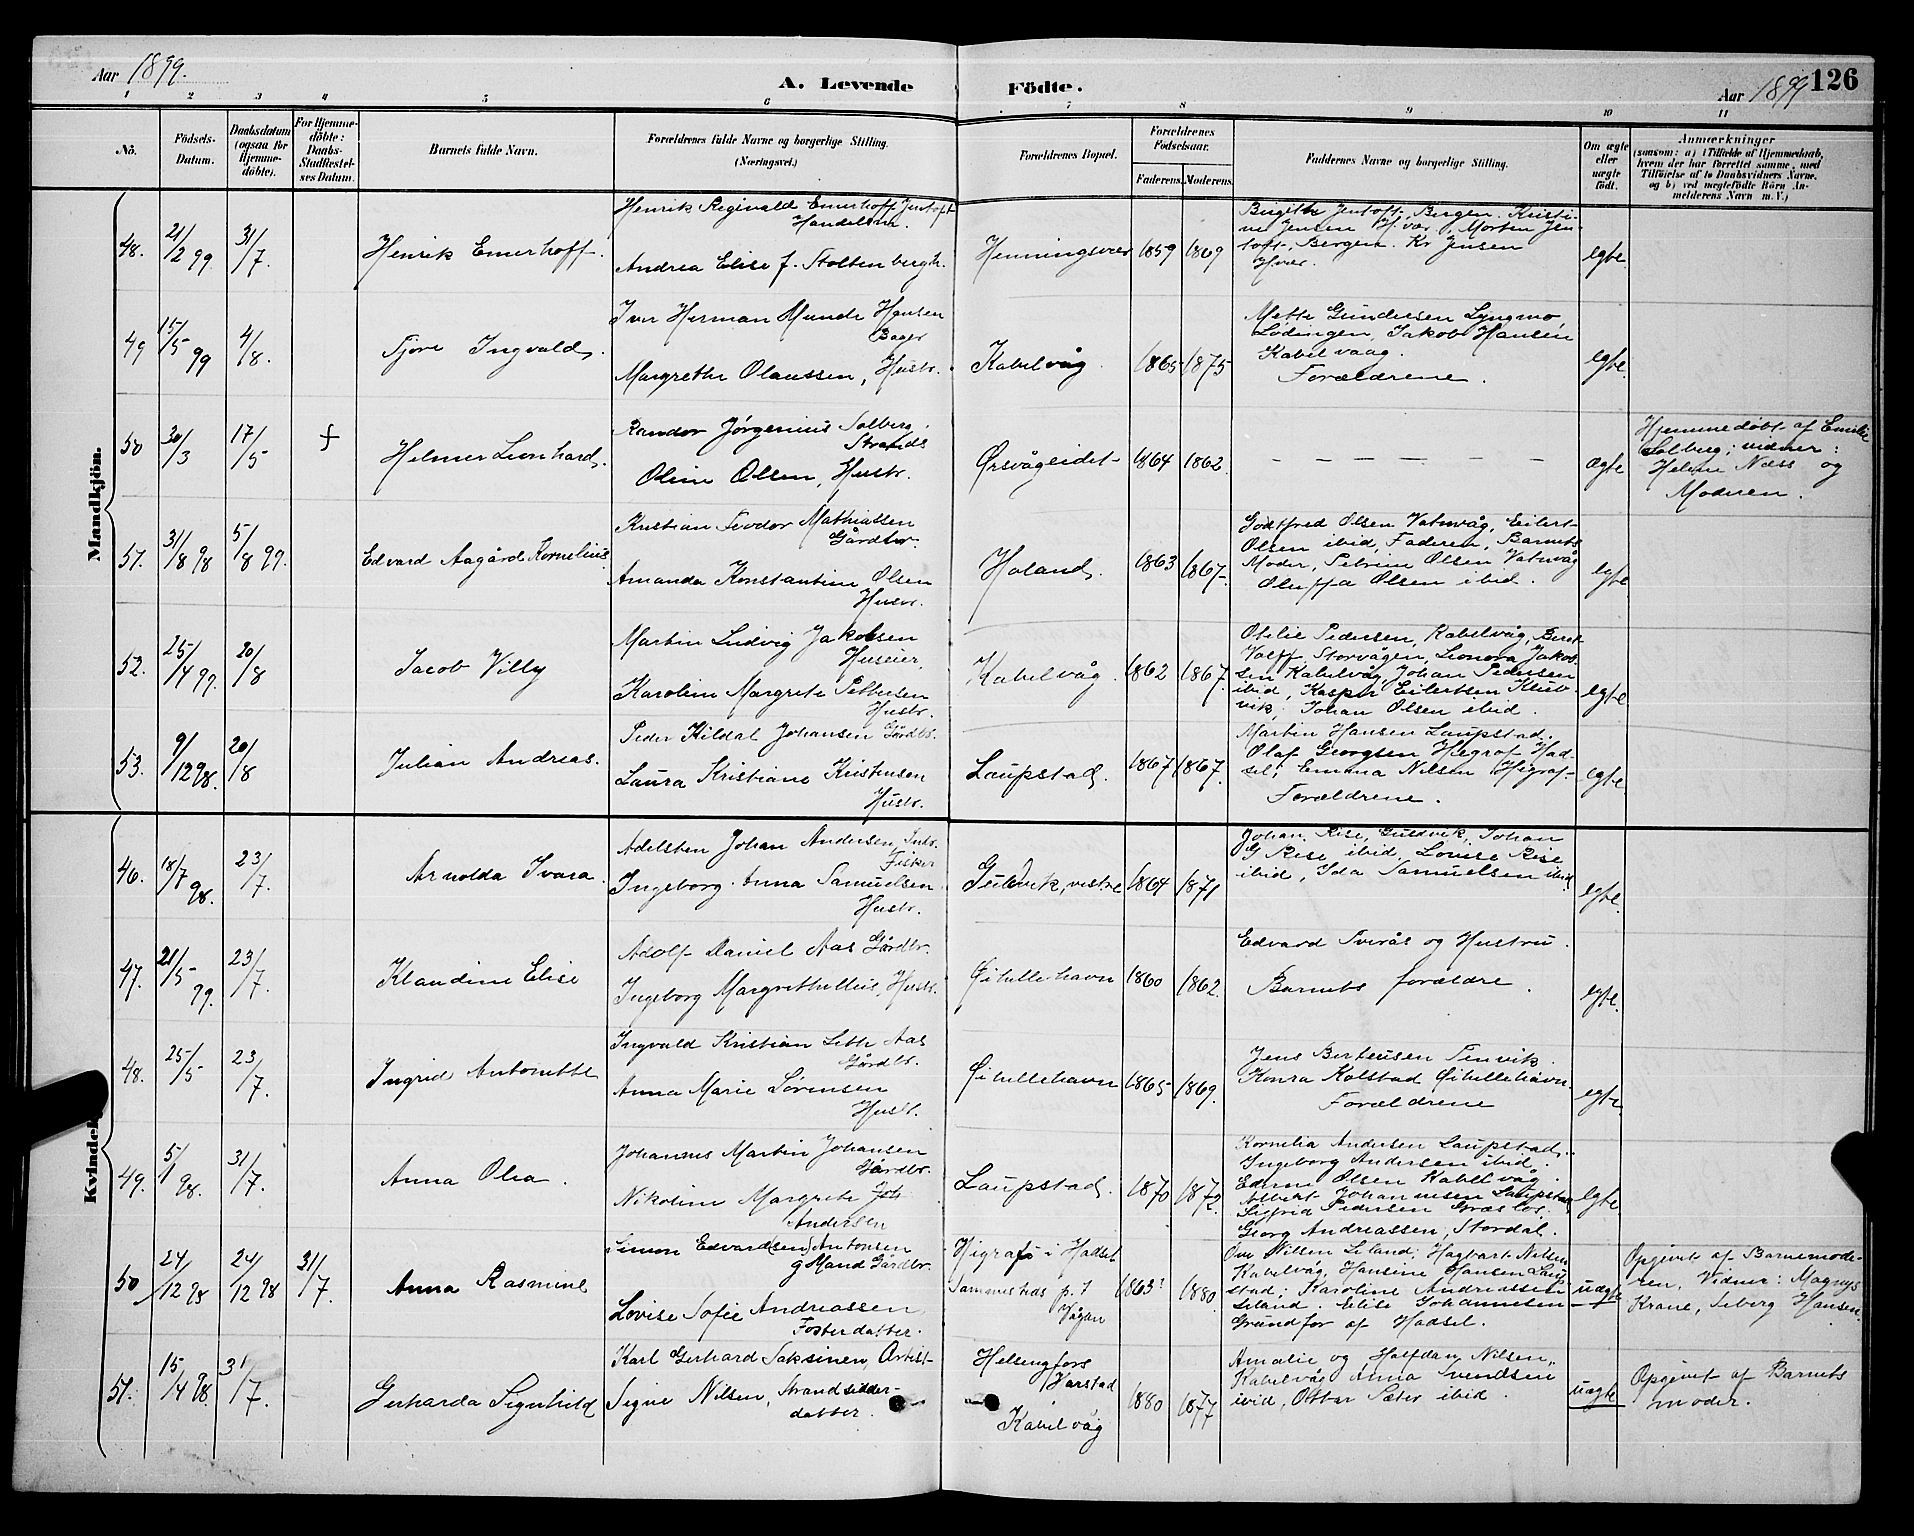 Aar 1899. A. Levende Födte. Aar 1899 126
1 2 3 4 5 6 7 8 9 10 11
No. Födsels-Datum. Daabsdatum (ogsaa for Hjemmedöbte). For Hjemmedöbte: Daabs-Stadfæstelses Datum. Barnets fulde Navn. Forældrenes fulde Navne og borgerlige Stilling. (Næringsvei.) Forældrenes Bopæl. Forældrenes Födselsaar. Faderens. Moderens. Faddernes Navne og borgerlige Stilling. Om ægte eller uægte födt. Anmærkninger (saasom: a) i Tilfælde af Hjemmedaab, hvem der har forrettet samme, med Tilföielse af to Daabsvidners Navne, og b) ved uægtefödte Börn Anmelderens Navn m. V.)
Mandkjön.
48. 21/2 99 31/7 Henrik Emerhoff.
Henrik Reginald Emerhoff Jentoft
Handelsm.
Andrea Elise f. Stoltenbergh.
Henningsvær 1859 1869
Birgithe Jentoft, Bergen. Kristi-
ne Jensen H.vær, Morten Jen-
toft, Bergen. Kr Jensen
Hvær.
egte
49 15/5 99 4/8. Tjøre Ingvald.
Iver Herman Munde Hansen
Bager
Margrethe Olaussen, Hustr.
Kabelvåg. 1865 1875
Mette Gundersen Lyngmo
Lødingen, Jakob Hansen
Kabelvaag.
Forældrene.
egte.
50 30/3 17/5 Helmer Leonhard.
Randor Jørgenius Solberg.
Strands
Oline Olsen, Hustr.
Ørsvågeidet 1864 1862.
– – – – – –
Ægte
Hjemmedøbt af Emilie
Solberg; vidner:
Helene Næss og
Moderen.
51. 31/8 98 5/8 99. Edvard Aagård Kornelius
Kristian Teodor Mathiassen
Gårdbr.
Amanda Konstantine Olsen
Hustr.
Holand. 1863 1867
Godtfred Olsen Vatnvåg, Eilert
Olsen ibid, Faderen, Barnets
Moder, Petrine Olsen Vatnvåg
Oluffa Olsen ibid.
egte
52. 25/4 99. 20/8 Jacob Villy
Martin Ludvig Jakobsen
Huseier,
Karoline Margrete Pettersen
Hustr.
Kabelvåg. 1862 1867.
Otelie Pedersen, Kabelvåg, Berit
Valff Storvågen, Leonora Jakob-
sen Kabelvåg, Johan Pedersen
ibid, Kasper Eilertsen
vik; Johan Olsen ibid.
egte
53. 9/12 98. 20/8 Julian Andreas.
Peder Kildal Johansen Gårdbr.
Laura Kristiane Kristensen
Hustr.
Laupstad. 1867 1867.
Martin Hansen Laupstad.
Olaf Georgsen Higraf Had-
sel; Emma Nilsen Higraf-
Forældrene.
egte
Kvindek
46. 18/7 98. 23/7. Arnolda Ivara.
Adelsten Johan Andersen, Inds.
Fisker
Ingeborg Anna Samuelsen
Hustr.
Gulvik, vestre 1864 1871
Johan Rise, Gulvik, Johan
G Rise ibid, Lovise Rise
ibid, Ida Samuelsen ibid
egte.
47. 21/5 99. 23/7. Klaudine Elise
Adolf Daniel Aas Gårdbr.
Ingeborg Margrethe, Hustr.
Øihellehavn 1860 1862.
Edvard Sverås og Hustru.
Barnets forældre.
egte.
48. 25/5 23/7 Ingrid Antonette
Ingvald Kristian Aas
Gårdbr.
Anna Marie Sørensen
Hustr.
Øihellehavn 1865 1869.
Jens Berteusen Finvik.
Konra Kolstad Øihellehavn.
Forældrene
egte
49. 5/1 98. 31/7. Anna Olea.
Johannes Martin Johansen
Gårdbr.
Nikoline Margrete
Andersen
Laupstad. 1870 1872.
Kornelia Andersen Laupstad,
Ingeborg Andersen ibid.
Olsen Kabelvåg.
Albert Johannesen Laupstad,
Sigfrid Pedersen
Georg Andreassen, Stordal.
egte
50 24/12 98 24/12 98 31/7. Anna Rasmine
Simon Edvard(sen) Antonsen
g Mand Gårdbr.
Lovise Sofie Andreassen
Fosterdatter.
Higraf i Hadsel
Sammesteds p.t
Vågan
1863? 1880
Over Nilsen Liland; Hagbart Nilsen
Kabelvåg, Hansine Hansen Laup-
stad; Karoline Andreassen
Liland. Elise Johannesen
Grundfor af Hadsel.
uægte
Opgivet af Barnemode-
ren. Vidner: Magnys
Krane, Seberg Hansen.
51. 15/4 98 31/7. Gerharda Signhild
Karl Gerhard Saksinen, Artist
Signe Nilsen, Strandsidder-
datter.
Helsingfors
Varstad
Kabelvåg
1880 1877
Amalie og Halfdan Nilsen,
Kabelvåg Anna Svendsen
ibid, Ottar Sæter ibid.
uægte
Opgivet af Barnets
moder.